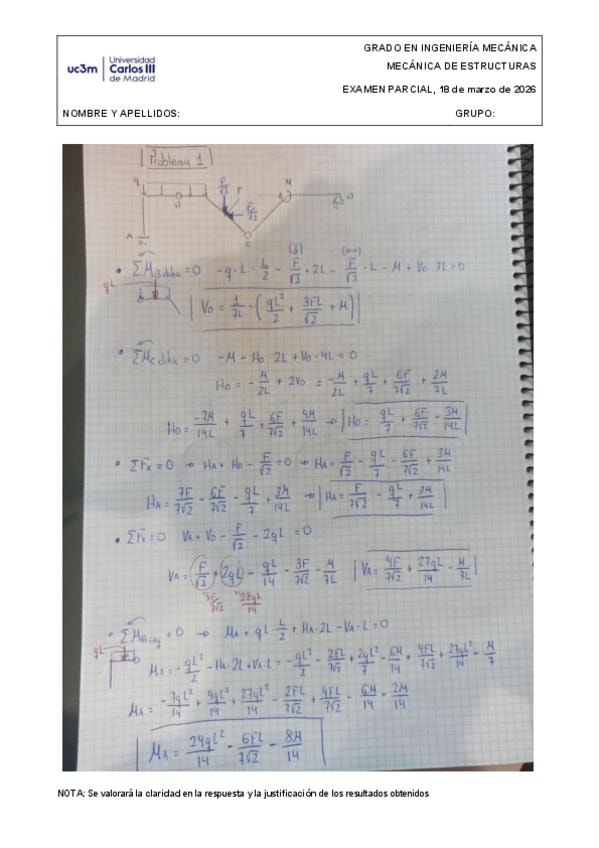 uc3m Universidad Carlos III de Madrid
GRADO EN INGENIERÍA MECÁNICA
MECÁNICA DE ESTRUCTURAS
EXAMEN PARCIAL, 18 de marzo de 2026
NOMBRE Y APELLIDOS: GRUPO:
Problema 1
q B F/√2 F F/√2 M D
A C
• ΣM_B dcha = 0 -q·L·L/2 - F/√2·2L - F/√2·L - M + V_D·7L = 0
qL
V_D = 1/7L·(qL²/2 + 3FL/√2 + M)
• ΣM_C dcha = 0 -M - H_D·2L + V_D·4L = 0
H_D = -M/2L + 2V_D = -M/2L + qL/7 + 6F/7√2 + 2M/7L
H_D = -7M/14L + qL/7 + 6F/7√2 + 4M/14L → H_D = qL/7 + 6F/7√2 - 3M/14L
• ΣF_x = 0 → H_A + H_D - F/√2 = 0 → H_A = F/√2 - qL/7 - 6F/7√2 + 3M/14L
H_A = 7F/7√2 - 6F/7√2 - qL/7 + 3M/14L → H_A = F/7√2 - qL/7 + 3M/14L
• ΣF_v = 0 V_A + V_D - F/√2 - 2qL = 0
V_A = F/√2 + 2qL - qL/14 - 3F/7√2 - M/7L V_A = 4F/7√2 + 27qL/14 - M/7L
7F/7√2 28qL/14
• ΣM_B izq = 0 → M_A + qL·L/2 + H_A·2L - V_A·L = 0
qL
M_A = -qL²/2 - H_A·2L + V_A·L = -qL²/2 - 2FL/7√2 + 2qL²/7 - 6M/14 + 4FL/7√2 + 27qL²/14 - M/7
M_A = -7qL²/14 + 4qL²/14 + 27qL²/14 - 2FL/7√2 + 4FL/7√2 - 6M/14 - 2M/14
M_A = 24qL²/14 - 6FL/7√2 - 8M/14
NOTA: Se valorará la claridad en la respuesta y la justificación de los resultados obtenidos